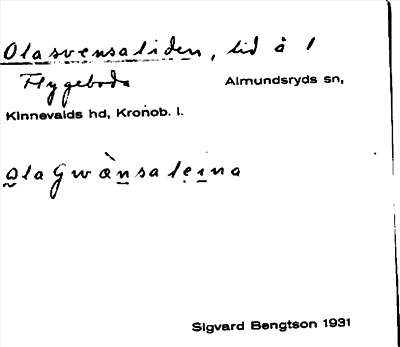 Olasvensaliden, lid å 1
Flygeboda Almundsryds sn,
Kinnevalds hd, Kronob. l.
Sigvard Bengtson 1931